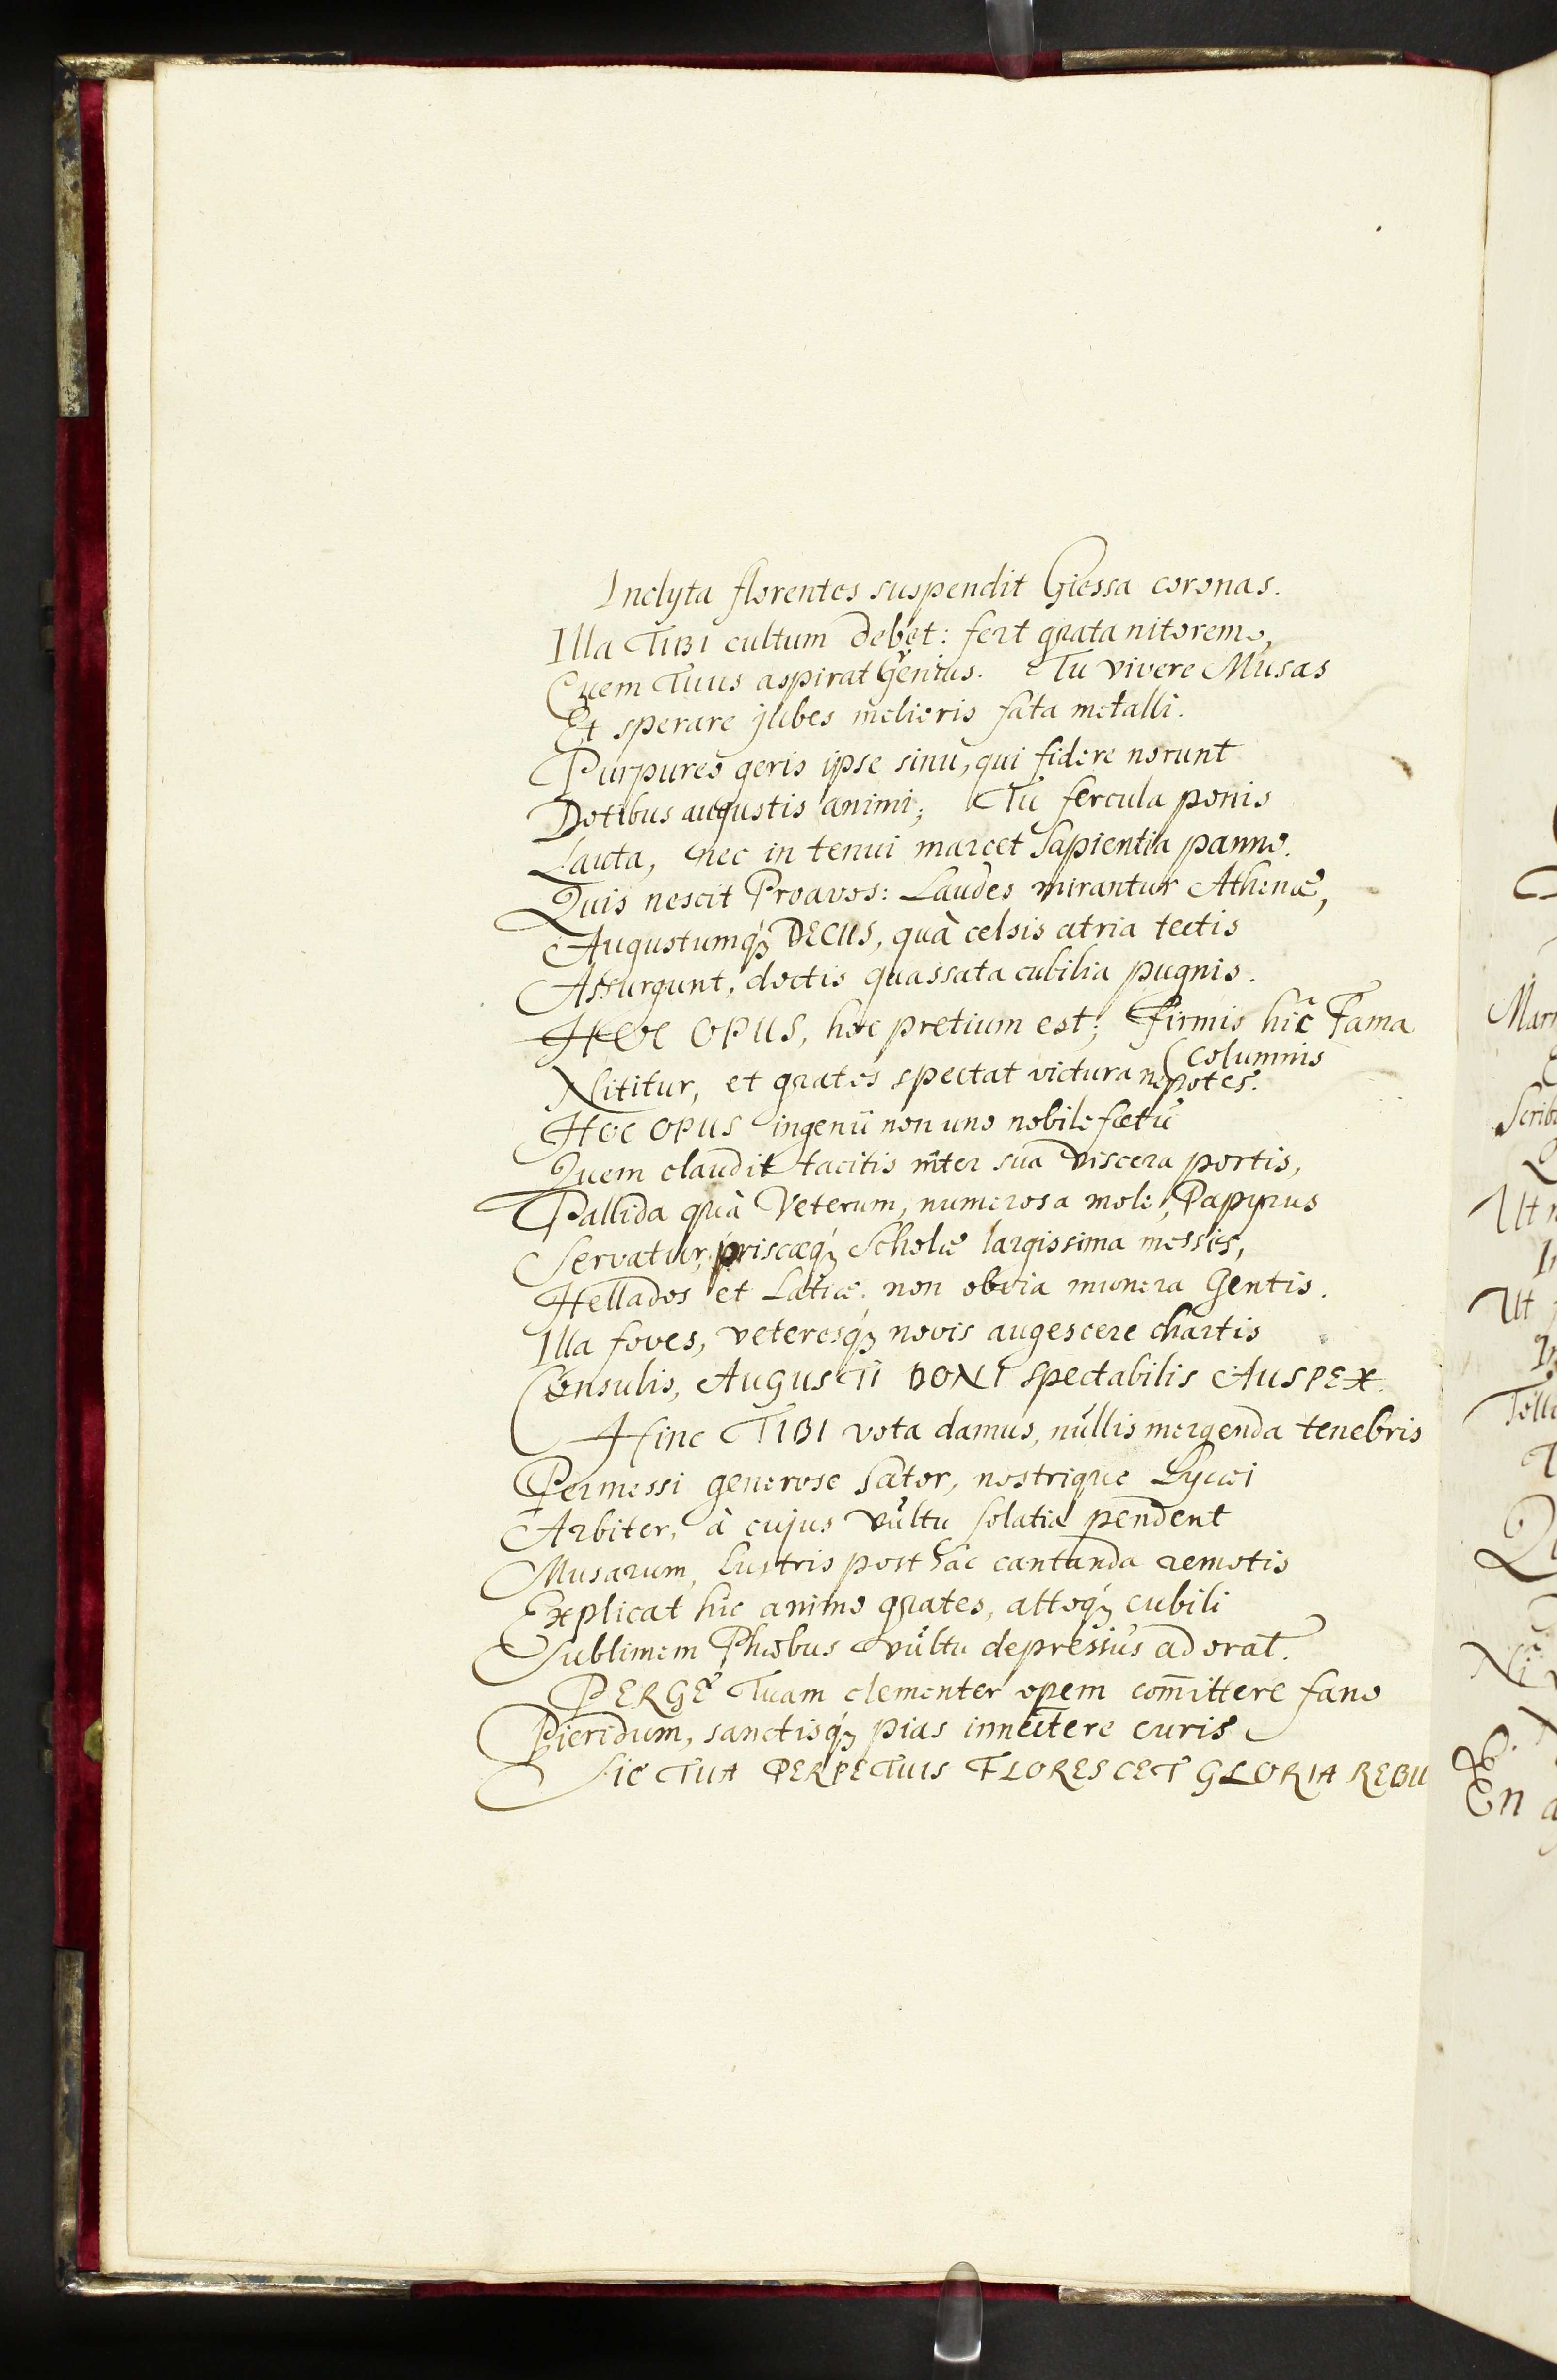 Inclyta florentes suspendit Giessa coronas.
Illa TIBI cultum debet: fert grata nitorem,
Quem Tuus aspirat Genius. Tu vivere Musas
Et sperare jubes melioris fata metalli.
Purpureo geris ipse sinu, qui fidere norunt
Dotibus augustis animi; Tu fercula ponis
Lauta, nec in tenui marcet Sapientia panno.
Quis nescit Proavos: Laudes mirantur Athenæ,
Augustumq́; DECUS, quà celsis atria tectis
Assurgunt, doctis quassata cubilia pugnis.
Hoc OPUS, hoc pretium est; Firmis hîc Fama
(columnis
Nititur, et grates spectat victura nepotes.
Hoc OPUS ingenii non uno nobile fœtu
Quem claudit tacitis inter sua viscera portis,
Pallida quà Veterum, numerosa moles, Papyrus
Servatur, priscæq́; Scholæ largissima messis,
Hellados et Latiæ non obvia munera Gentis.
Illa foves, veteresq́; novis augescere chartis
Consulis, AUGUSTI DONI spectabilis AUSPEX.
Hinc TIBI vota damus, nullis mergenda tenebris
Permessi generose Sator, nostrique Lycæi
Arbiter, à cujus vultu solatia pendent
Musarum, Lustris post hac cantanda remotis
Explicat hic animo grates, attoq́; cubili
Sublimem Phœbus vultu depressius adorat.
PERGE Tuam clementer opem com̄ittere fano
Pieridum, sanctisq́; pias innectere curis
Sic TUA PERPETUIS FLORESCET GLORIA REBU
Scrib
En